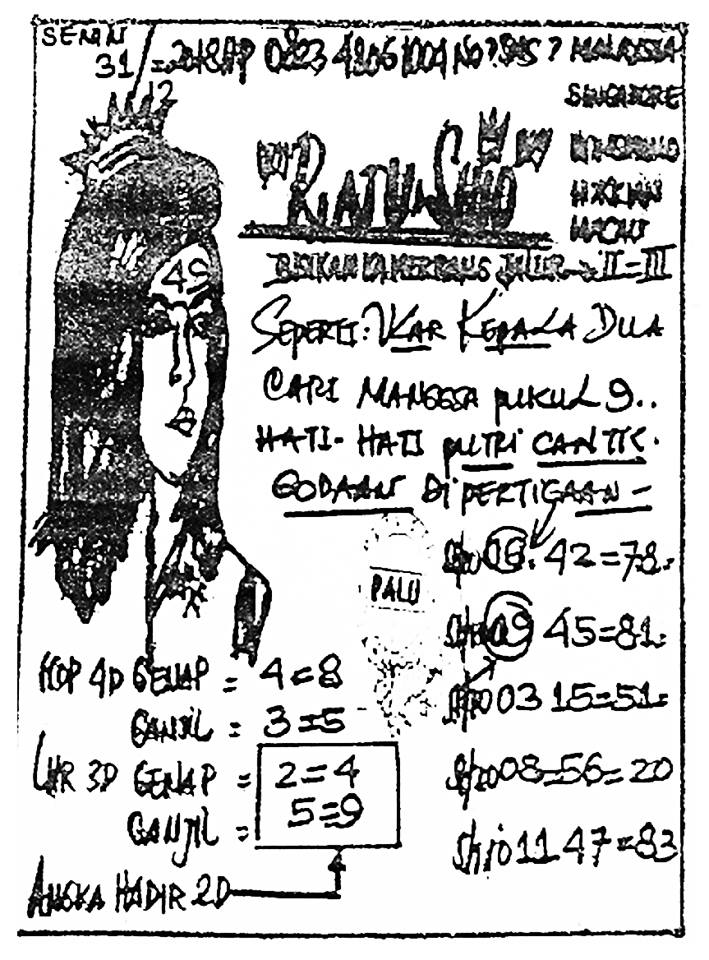 SENIN
31 = 2018 HP 0823 4806 1004 NO? SMS? MALAYSIA
12
SINGAPORE
"RATU SHIO"
49
JALUR II=III
SEPERTI: ULAR KEPALA DUA
CARI MANGSA PUKUL 9..
HATI-HATI PUTRI CANTIK.
GODAAN DIPERTIGAAN -
Shio 42=78.
PALU
Shio 09 45=81.
Shio 03 15=51.
Shio 08=56=20
Shio 11 47=83
KOP 4D GENAP = 4=8
GANJIL = 3=5
EKR 3D GENAP = 2=4
GANJIL = 5=9
ANGKA HADIR 2D